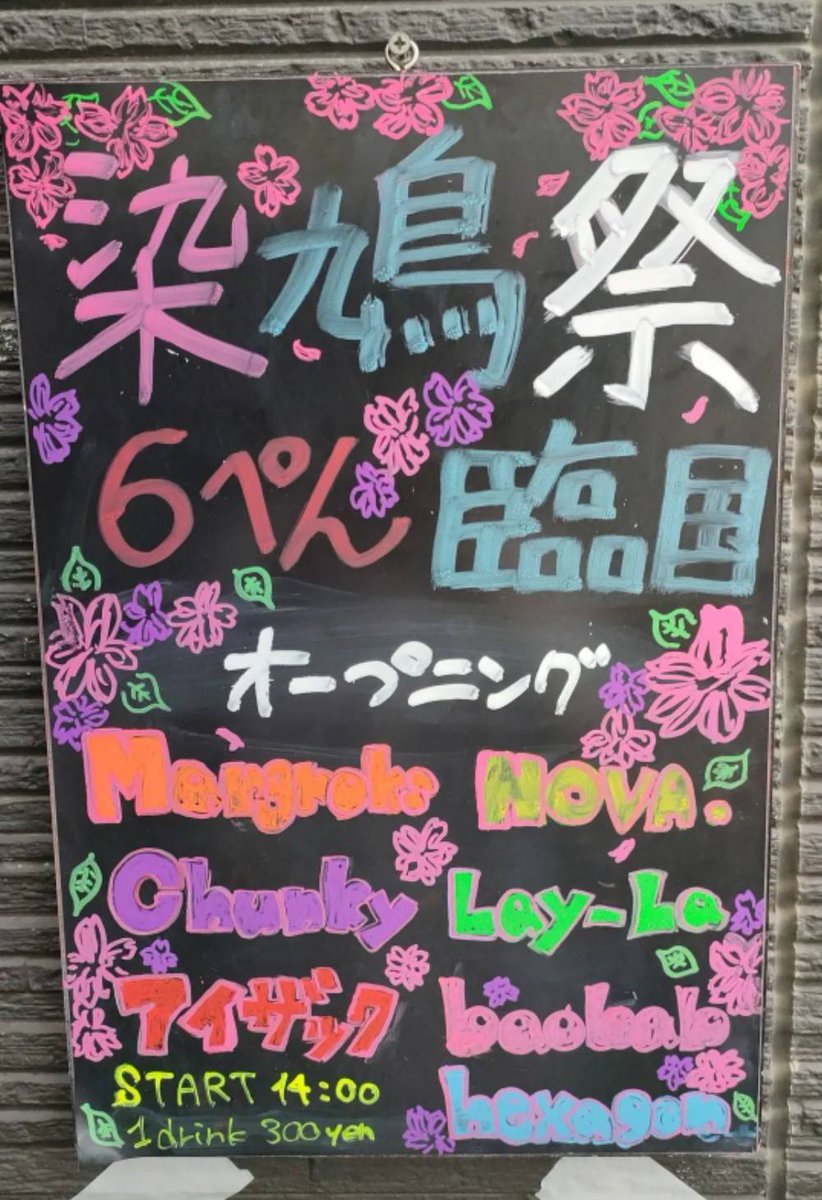 染鳩祭
6ぺん 臨目
オープニング
Mangroks NOVA.
Chunky Lay-La
アイザック baobab
START 14:00 hexagon
1 drink 300 yen